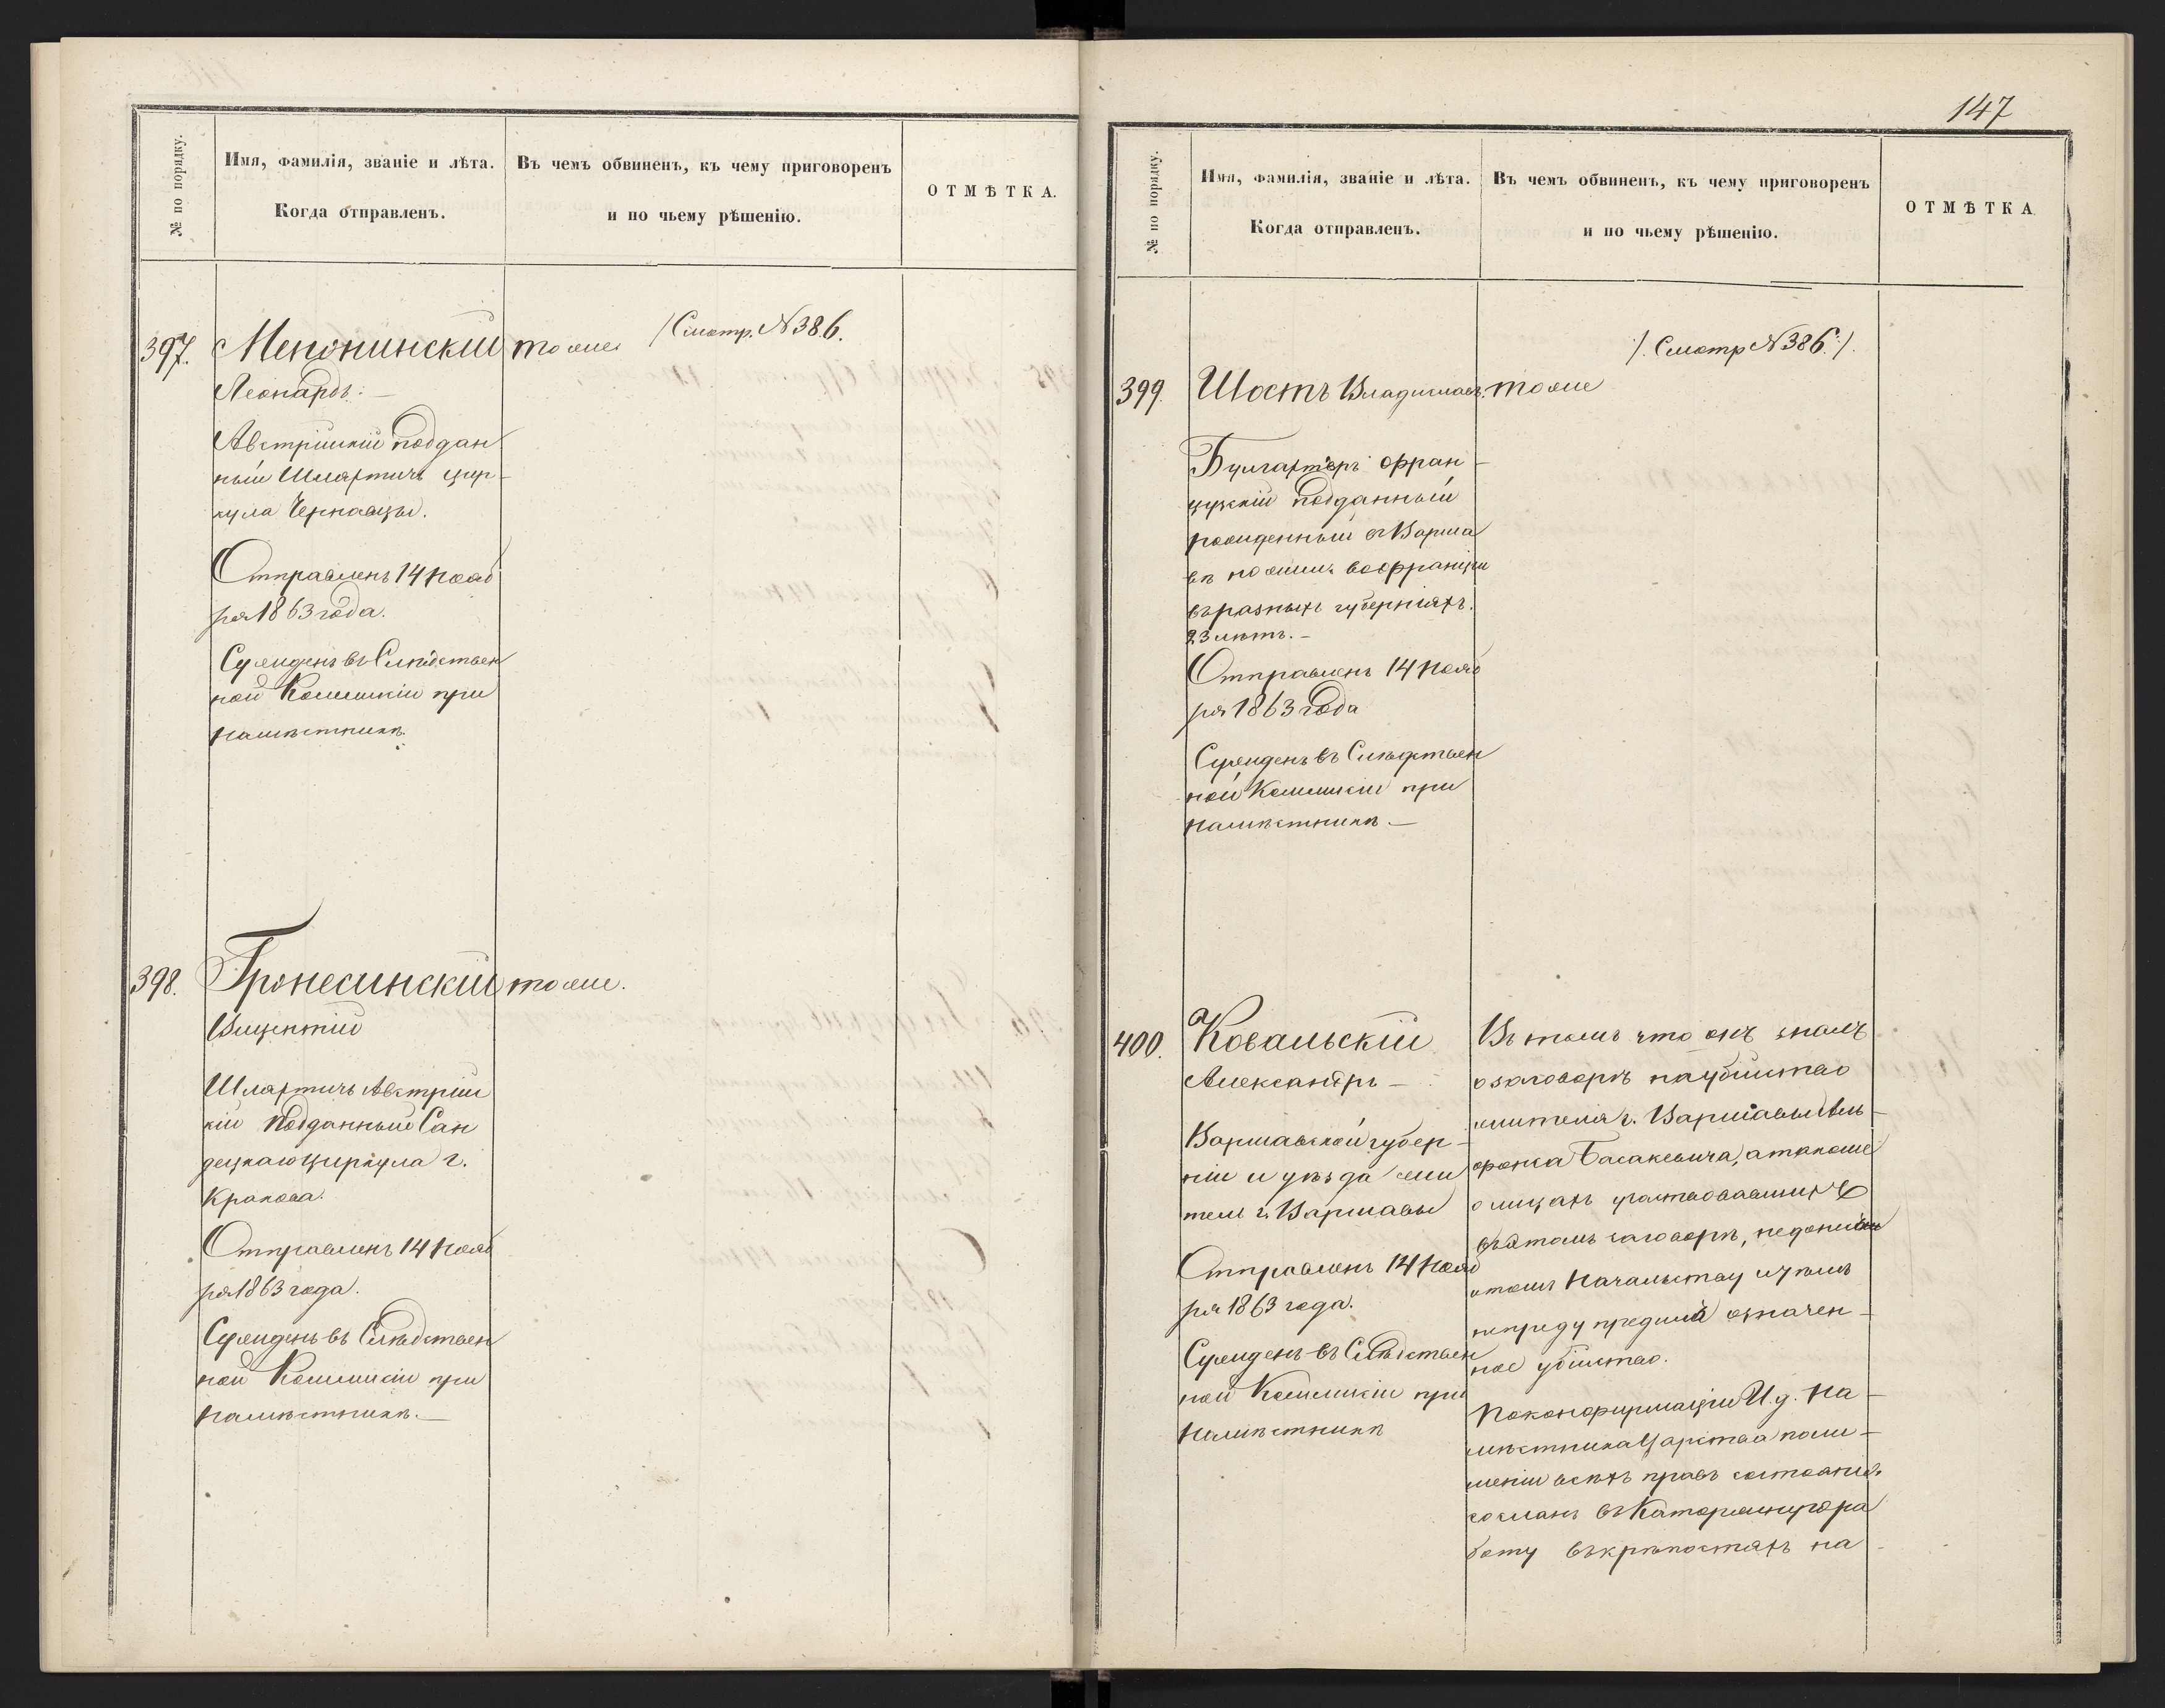 № по порядку.
Имя, фамилія, званіе и лѣта.
Когда отправленъ.
Въ чемъ обвиненъ, къ чему приговоренъ
и по чьему рѣшенію.
ОТМѢТКА.
/Смотр. N 386.
397. Менонинскій тоже
Леонардъ. —
Австрійскій поддан
ный Шляхтичъ цир-
кула Черновцы.
Отправленъ 14 нояб
ря 1863 года.
Сужденъ въ Слѣдствен
ной Коммисіи при
Намѣстникѣ.
398. Гронесинскій тоже.
Вицентій
Шляхтичъ Австрійс
кій подданный Сан
децкаго циркула г.
Кракова.
Отправленъ 14 нояб
ря 1863 года.
Сужденъ въ Слѣдствен
ной Коммисіи при
Намѣстникѣ. —
147
№ по порядку.
Имя, фамилія, званіе и лѣта.
Когда отправленъ.
Въ чемъ обвиненъ, къ чему приговоренъ
и по чьему рѣшенію.
ОТМѢТКА
/. Смотр N 386. /.
399. Шостъ Владиславъ. тоже
Бухгалтеръ Фран-
цузскій подданный
рожденный въ Варша
вѣ но жилъ во Франціи
въ разныхъ губерніяхъ.
23 лѣтъ. —
Отправленъ 14 нояб
ря 1863 года
Сужденъ въ Слѣдствен
ной Коммисіи при
Намѣстникѣ. —
400. Ковальскій
Александръ —
Варшавской губер-
ніи и уѣзда жи
тель г. Варшавы
Отправленъ 14 нояб
ря 1863 года.
Сужденъ въ Слѣдствен
ной Коммисіи при
Намѣстникѣ
Въ томъ что онъ зналъ
о заговорѣ на убійство
жителя г. Варшавы Аль-
фонса Басакевича, а также
о лицахъ участвовавшихъ
въ этомъ заговорѣ, не донесъ
о томъ Начальству и чѣмъ
непреду предилъ означен-
ное убійство.
По конфирмаціи И. д. На-
мѣстника Царства по ли-
шеніи всѣхъ правъ состоянія.
сосланъ въ Каторжную ра
боту въ крѣпостяхъ на